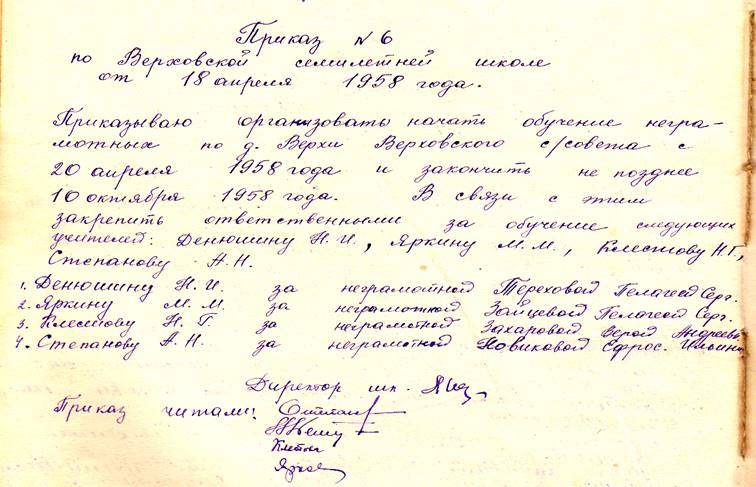 Приказ № 6
по Верховской семилетней школе
от 18 апреля 1958 года.
Приказываю организовать начать обучение негра-
мотных по д. Верхи Верховского с/совета с
20 апреля 1958 года и закончить не позднее
10 октября 1958 года. В связи с этим
закрепить ответственными за обучение следующих
учителей: Денюшину Н.И., Яркину М.М., Клестову Н.Г.,
Степанову А.Н.
1. Денюшину Н.И. за неграмотной Тереховой Пелагеей Серг.
2. Яркину М.М. за неграмотной Зайцевой Пелагеей Серг.
3. Клестову Н.Г. за неграмотной Захаровой Верой Андреевн.
4. Степанову А.Н. за неграмотной Новиковой Ефрос. Ильинич
Директор шк.
Приказ читали: